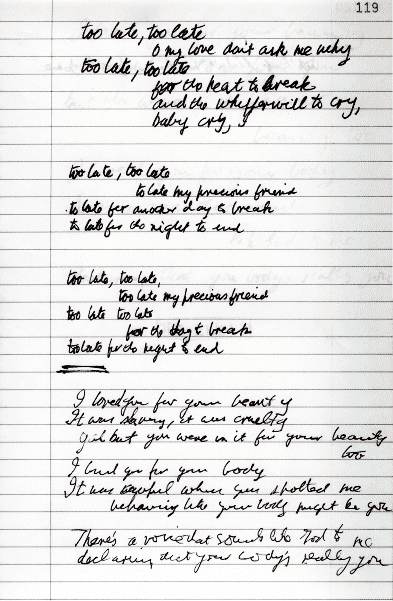 119
too late, too late
O my love don't ask me why
too late, too late
for the heat to break
and the whipperwill to cry,
baby cry,
too late, too late
to late my precious friend
to late for another day to break
to late for the night to end
too late, too late,
too late my precious friend
too late too late
for the day to break
too late for the night to end
I loved you for your beauty
It was slavery, it was cruelty
but you were in it for your beauty
too
I loved you for your body
It was when you me
behaving like your body might be you
There's a voice that sounds like God to me
declaring that your body's really you